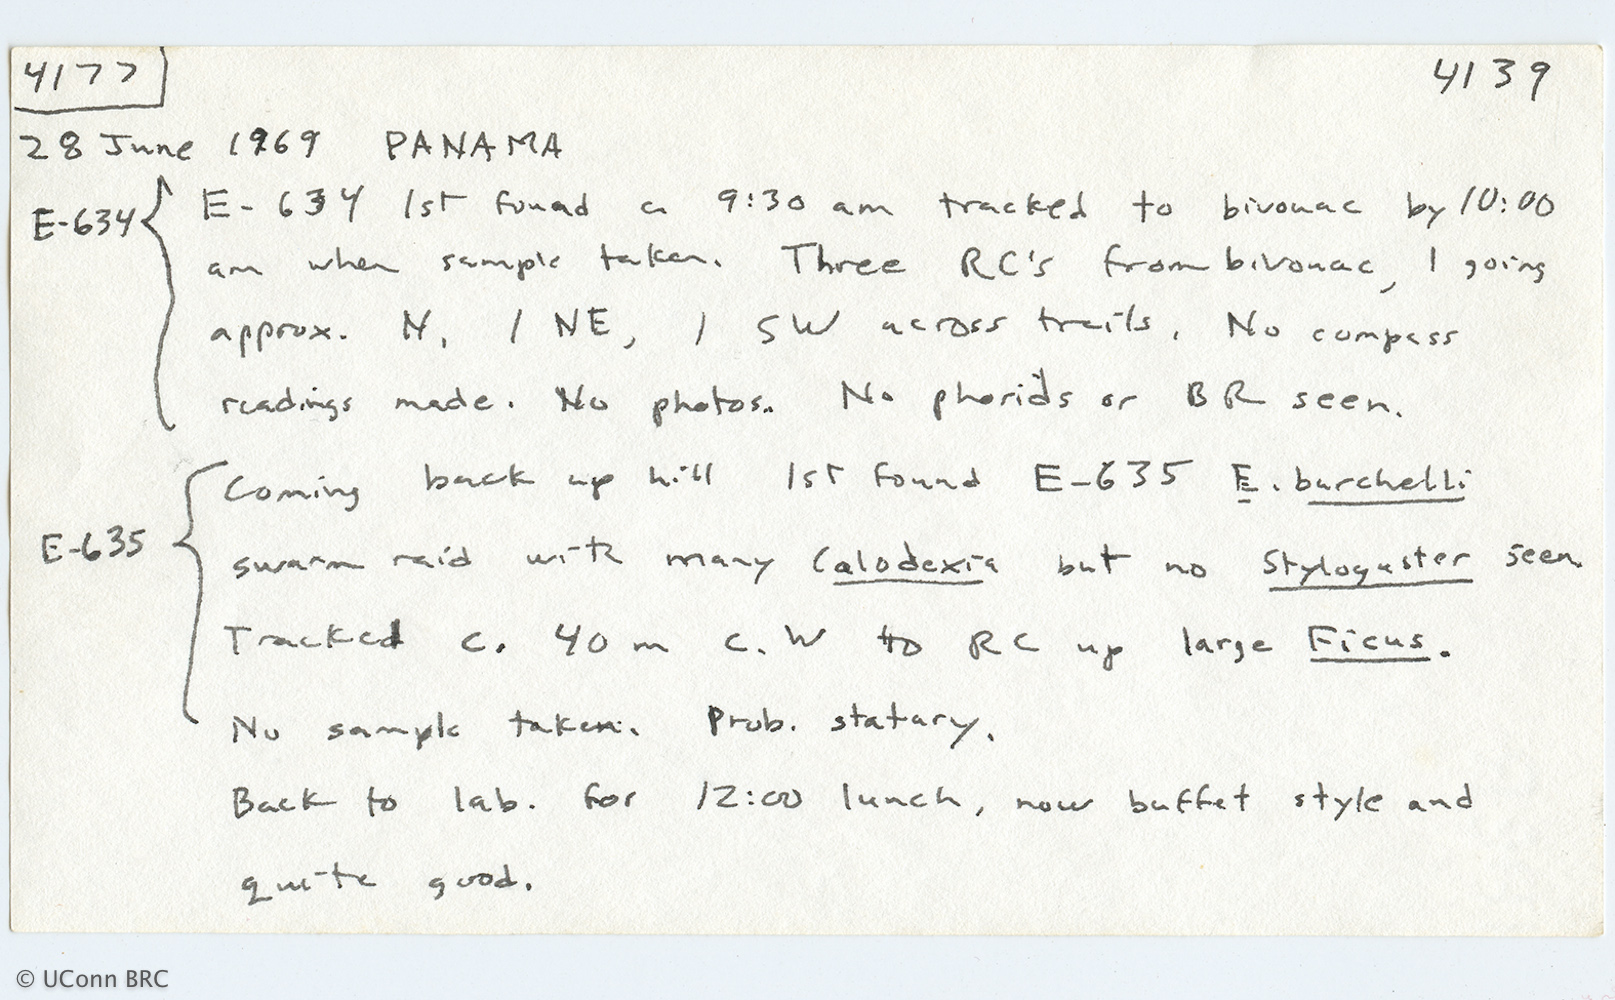 4177
4139
28 June 1969 PANAMA
E-634 E-634 1st found c. 9:30 am tracked to bivouac by 10:00
am when sample taken. Three RC's from bivouac, 1 going
approx. N, 1 NE, 1 SW across trails. No compass
readings made. No photos. No phorids or BR seen.
Coming back up hill 1st found E-635 E. burchelli
E-635 swarm raid with many Calodexia but no Stylogaster seen.
Tracked c. 40 m c. W to RC up large Ficus.
No sample taken. Prob. statary.
Back to lab. for 12:00 lunch, now buffet style and
quite good.
© UConn BRC